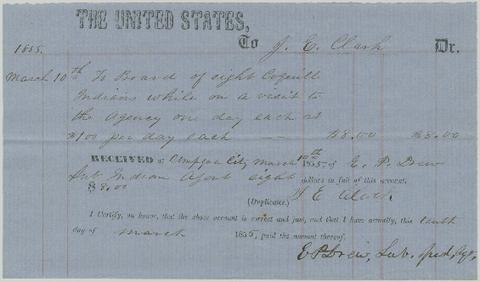 THE UNITED STATES,
1855. To J. E. Clark Dr.
March 10th To Board of eight Coquille
Indians while on a visit to
the agency one day each at
$1.00 per day each $8.00 $8.00
RECEIVED at Umpqua City March 10th 1855, of E. P. Drew
Sub Indian Agent eight dollars in full of this account.
$8.00
(Duplicate.) J E Clark
I Certify, on honor, that the above account is correct and just, and that I have actually, this tenth
day of March 1855, paid the amount thereof.
E P Drew, Sub. Ind. Agt.